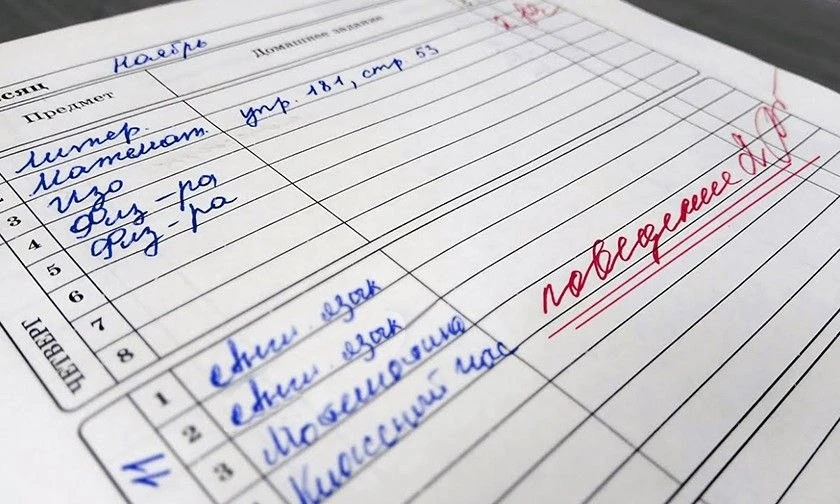 сяц ноябрь
Предмет Домашнее задание
литер.
1 математ. упр. 181, стр 53
Изо
3 Физ-ра
4 Физ-ра
5
6
7
8
ЧЕТВЕРГ
поведение 2
1 Англ. язык
2 Англ. язык
3 Математика
Классный час
11